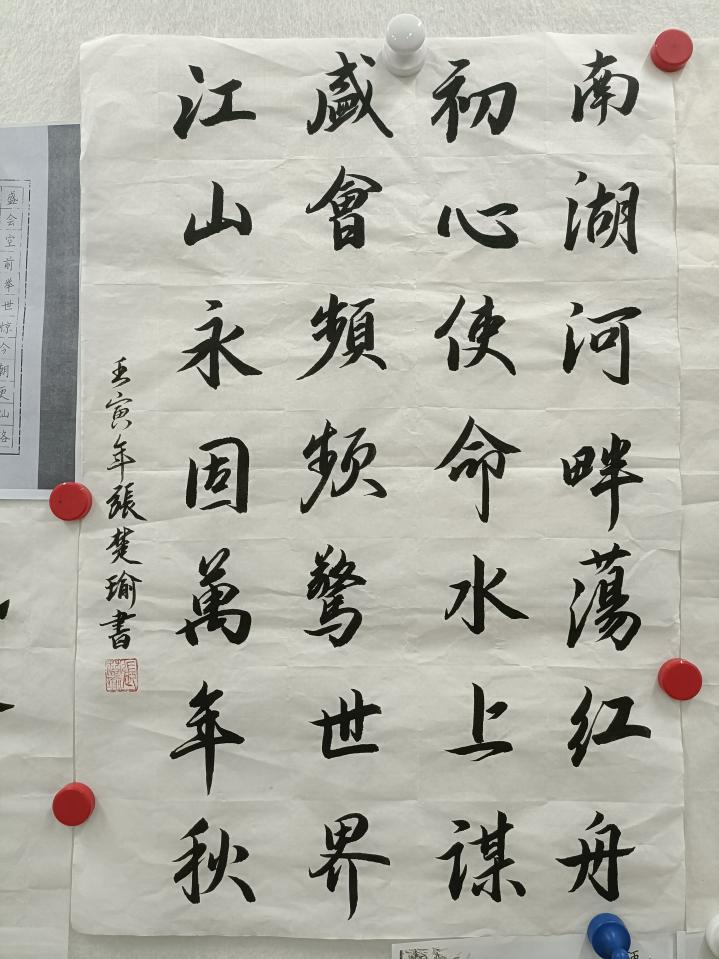 南湖河畔蕩红舟
初心使命水上谋
盛會頻频驚世界
江山永固萬年秋
壬寅年張楚瑜書
盛会空前举世惊今朝更